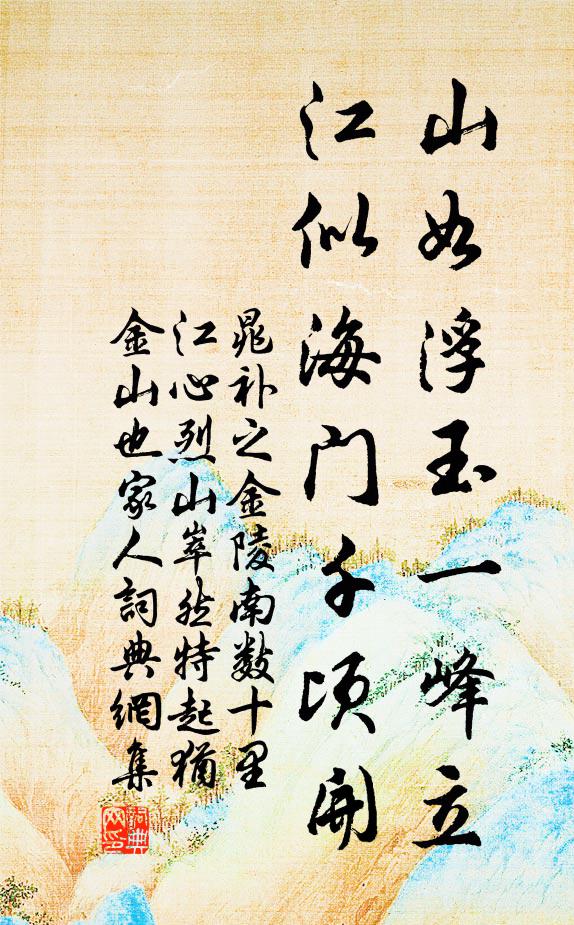 山如浮玉一峰立
江似海门千顷开
晁补之金陵南数十里
江心烈山崒然特起犹
金山也家人詞典網集
詞典
网印